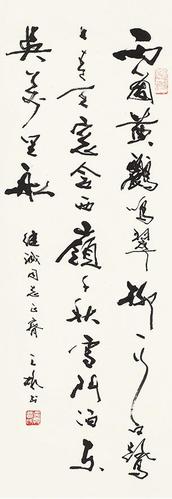 两个黄鹂鸣翠柳一行白鹭
上青天窗含西岭千秋雪门泊东
吴万里船
继诚同志正斋